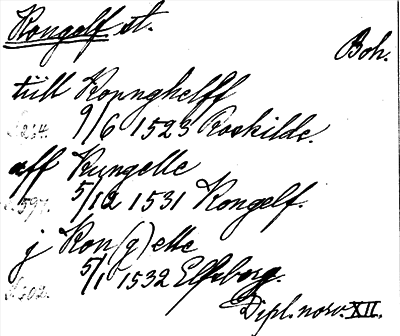 Kongelf st.
Boh.
till Kopnghelff
s. 264. 9/6 1523 Roskilde.
aff Kungelle
s. 597. 5/12 1531 Kongelf.
j Kon(g)elle
s. 602. 5/1 1532 Elfsborg.
Dipl. norv. XII.